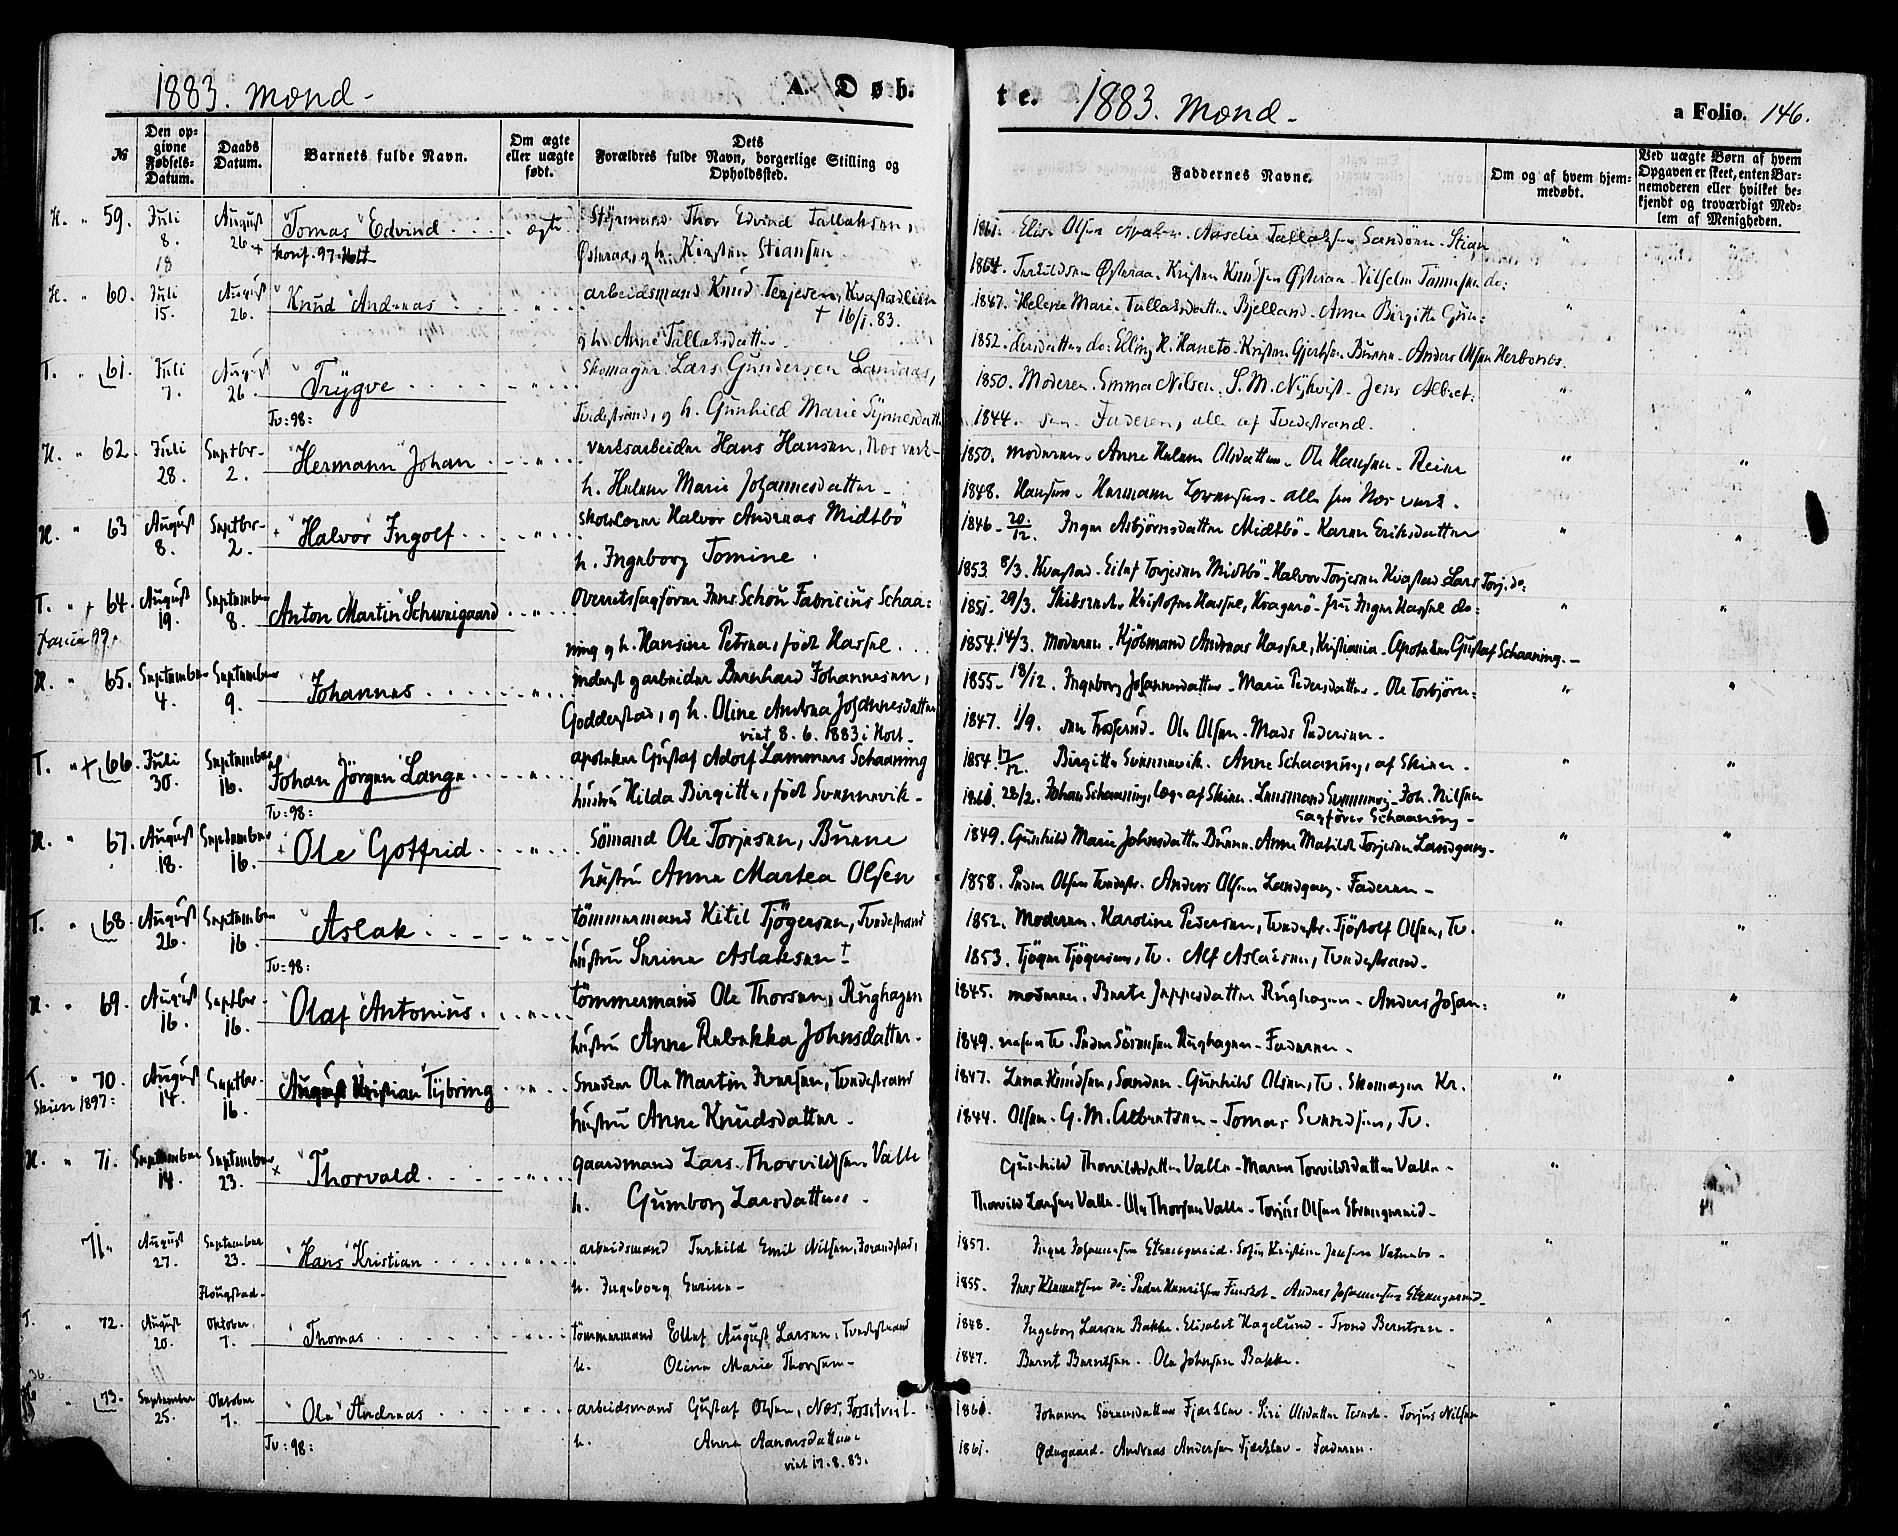 1883. mænd-
A. Døb-
№
Den op-
givne
Fødsels-
Datum.
Daabs
Datum.
Barnets fulde Navn.
Om ægte
eller uægte
født.
Dets
Forældres fulde Navn, borgerlige Stilling og
Opholdssted.
H. " 59. Juli 8. 18 August 26 + "Tomas" Edvind ægte Styrmand Thor Edvind Tallaksen,
konf. 97. Holt Østeraa, og h. Kirsten Stiansen
H. " 60. Juli 15. August 26. "Knud" Andreas " arbeidsmand Knud Terjesen, Kvastadlien
† 16/1. 83.
og h. Anne Tallaksdatter
T. " 61. Juli 7. August 26. "Trygve " Skomager Lars Gundersen Landaas,
Tv: 98: Tvedestrand, og h. Gunhild Marie Synnesdatt
H. " 62. Juli 28. Septbr- 2. "Hermann" Johan " verksarbeider Hans Hansen, Næs verk-
h. Helene Marie Johannesdatter-
H. " 63 August 8. Septbr- 2. + "Halvor" Ingolf " Skolelærer Halvor Andreas Midtbö
h. Ingeborg Tomine.
T. " + 64. August 19. September 8. Anton "Martin" Schweigaard " Overretssagfører Jens Schou Fabricius Schaa=
ning og h. Hansine Petrea, født Hassel
H. " 65. September 4. September 9. "Johannes " inderst g arbeider Bernhard Johannesen,
Godderstad, og h. Oline Andrea Johannesdatter
viet 8. 6. 1883 i Holt-
T. " + 66. Juli 30. September 16. Johan Jörgen "Lange " apoteker Gustaf Adolf Lammers Schaaning
Tv: 98: hustru Hilda Birgitte, født Svennevik-
H. " 67. August 18. September 16. + "Ole" Gotfrid " Sömand Ole Torjesen, Bunne
hustru Anne Martea Olsen
T. " 68. August 26. September 16. "Aslak " tömmermand Kitil Tjögersen, Tvedestrand
Tv: 98: hustru Serine Aslaksen †
H. " 69. August 16. Septbr- 16. "Olaf" Antonius " tömmermand Ole Thorsen, Rughagen
hustru Anne Rebekka Johnsdatter.
T. " 70. August 14. Septbr- 16. "August Kristian" Tybring " Snedker Ole Martin Iversen, Tvedestrand
Skien 1897: hustru Anne Knudsdatter-
H. " 71. September 14. September 23. × "Thorvald " gaardmand Lars Thorvildsen Valle
h. Gumborg Larsdatter-
71. August 27. September 23. "Hans" Kristian " arbeidsmand Terkild Emil Nilsen, Forandstad,
Flougstad- h. Ingeborg Serine-
T. " 72. August 20. Oktober 7. "Thomas " tömmermand Ellef August Larsen, Tvedestrand
h. Oline Marie Thorsen-
" 73. September 25. Oktober 7. "Ole" Andreas " arbeidsmand Gustaf Olsen, Næs, Fossetveit-
Tv: 98: h. Anne Aanonsdatter
viet 17. 8. 83.
te.
1883. mænd-
a Folio. 146.
Faddernes Navne.
Om og af hvem hjem-
medøbt.
Ved uægte Børn af hvem
Opgaven er skeet, enten Bar-
nemoderen eller hvilket be-
kjendt og troværdigt Med-
lem af Menigheden.
1861. Elise Olsen Aselie Tallaksen Sandöen. Stian
1864. Terkildsen Østeraa. Kristen Knudsen Østeraa. Vilhelm Tønnesen do:
1847. Helene Marie Tallaksdatter Bjelland. Anne Birgitte Gun=
1852. dersdatter do: Elling H. Haneto. Kristen Gjertsen Bunne. Anders Olsen Herbones.
1850. Moderen. Emma Nilsen. S. M. Nykvist. Jens Albret=
1844. sen. Faderen, alle af Tvedestrand.
1850. moderen. Anne Helene Olsdatter. Ole Hansen. Reier
1848. Hansen. Hermann Lorensen. alle fra Næs verk.
1846 - 20/12. Inger Asbjørnsdatter Midtbö. Karen Eriksdatter
1853 8/3. Kvastad. Eilef Torjesen Midtbö. Halvor Torjesen Kvastad Lars Torj. do:
1851. 29/3. Skibsreder Kristofer Hassel, Kragerö. fru Inger Hassel do:
1854. 14/3. Moderen. Kjöbmand Andreas Hassel, Kristiania. Apoteker Gustaf Schaaning.-
1855- 18/12. Ingeborg Johannesdatter. Marie Pedersdatter. Ole Torbjörn=
1847. 1/9. sen Ole Olsen. Mads Pedersen-
1854. 17/12. Birgitte Svennevik. Anne Schaaning, af Skien.
1861. 28/2. Johan Schaaning, læge af Skien. Lensmand Svennevig. Joh. Nilsen
Sagförer Schaaning-
1849. Gunhild Marie Johnsdatter Bunne. Anne Matilde Torjesen Landgang.
1858. Peder Olsen Tvedestr. Anders Olsen Landgang. Faderen-
1852. Moderen. Karoline Pedersen, Tvedestr. Tjöstolf Olsen, Tv.
1853. Tjöger Tjögersen, Tv. Alf Aslaksen, Tvedestrand.
1845. moderen. Berte Jeppesdatter Rughagen. Anders Johan=
1849. nesen Tv. Peder Sörensen Rughagen. Faderen-
1847. Lena Knudsen, Sanden. Gunhild Olsen, Tv. Skomager Kr.
1844. Olsen. G. M. Albertsen. Tomas Svendsen, Tv.
Gunhild Thorvildsdatter Valle. Maren Torvildsdatter Valle-
Thorvild Larsen Valle. Ole Thorsen Valle. Torjus Olsen Strengereid-
1857. Inger Johannesen Strengereid. Sofie Kristine Jensen Vatnebo-
1855. Jens Klementsen do: Peder Henriksen Andreas Johannesen Strengereid-
1848. Ingeborg Larsen Bakke. Elisabet Hagelund. Trond Berntsen-
1847. Bernt Berntsen. Ole Johnsen Bakke.
1861. Johanne Sörensdatter Fjærkleiv. Siri Olsdatter Torjus Nilsen
1861. Ødegaard. Andreas Andersen Fjærkleiv. Faderen.